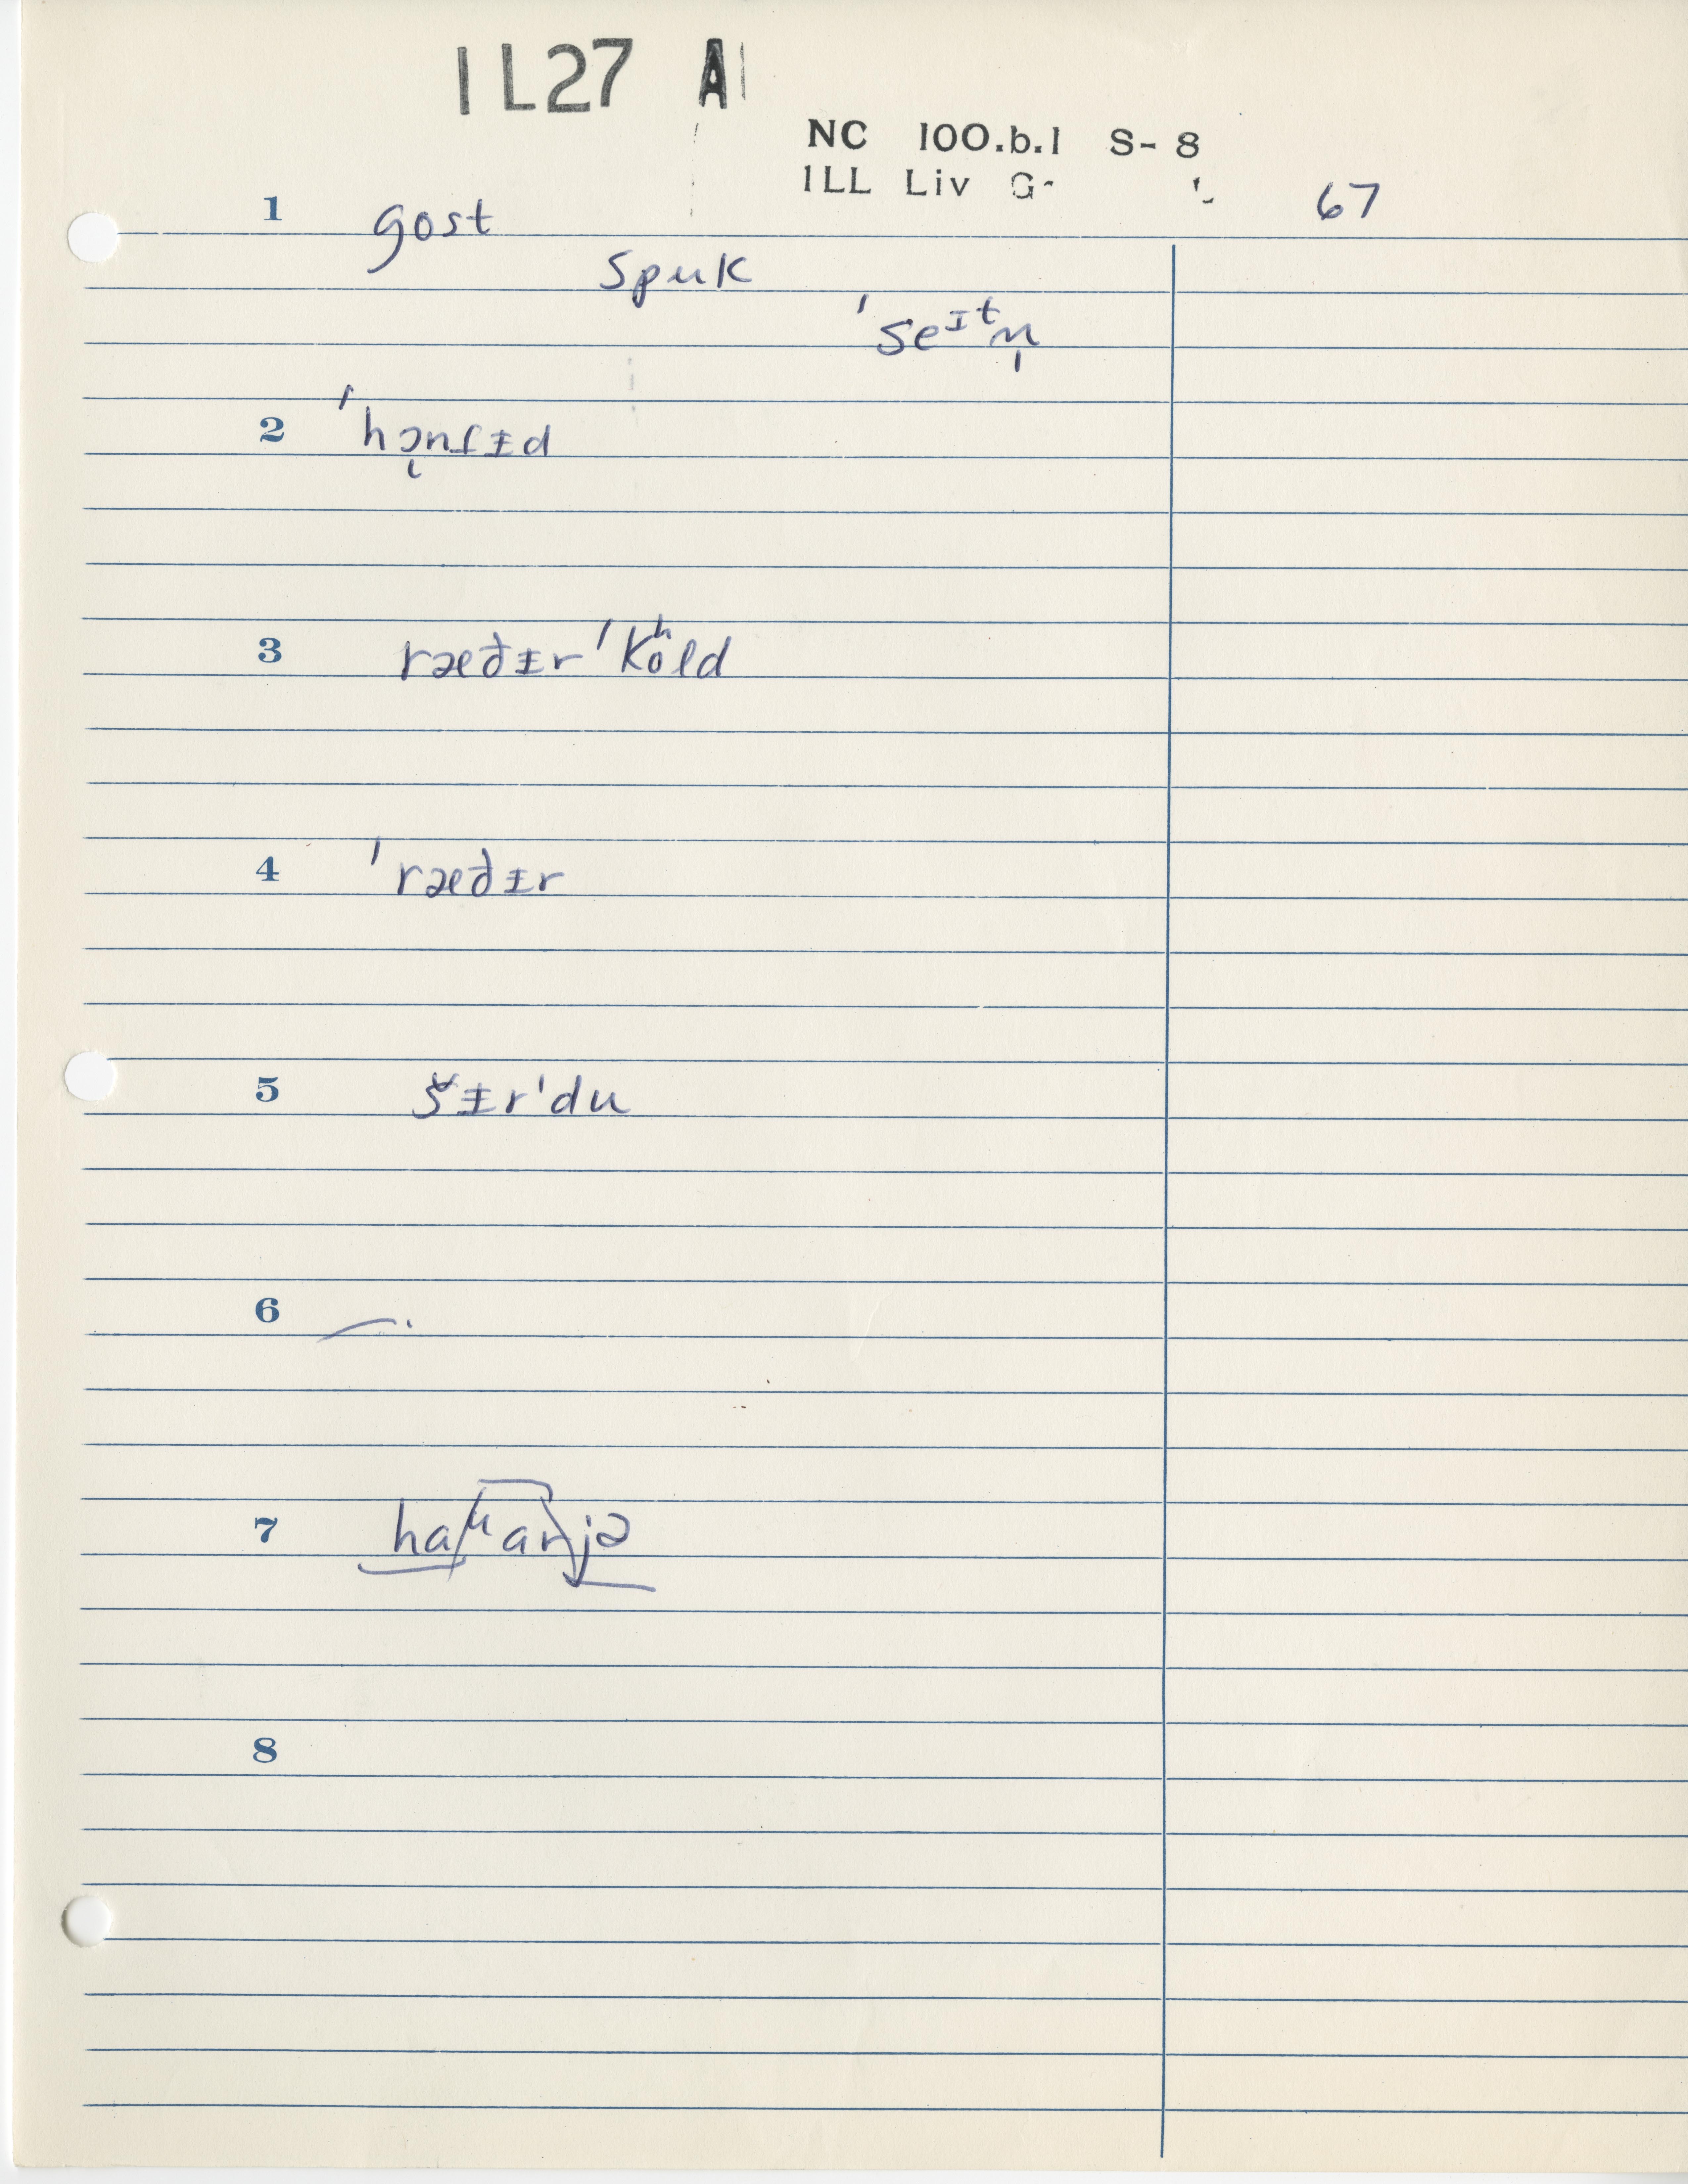 1L27 A
NC 100.b.1 S-8
ILL Liv G
67
1 gost
spuk
ˈseᴵᵗn̩
2 ˈhɔ̜nʃɨd
3 ræðɨr ˈkʰold
4 ˈræðɨr
5 šɨrˈdu
6 —.
7 haʷarjə
8